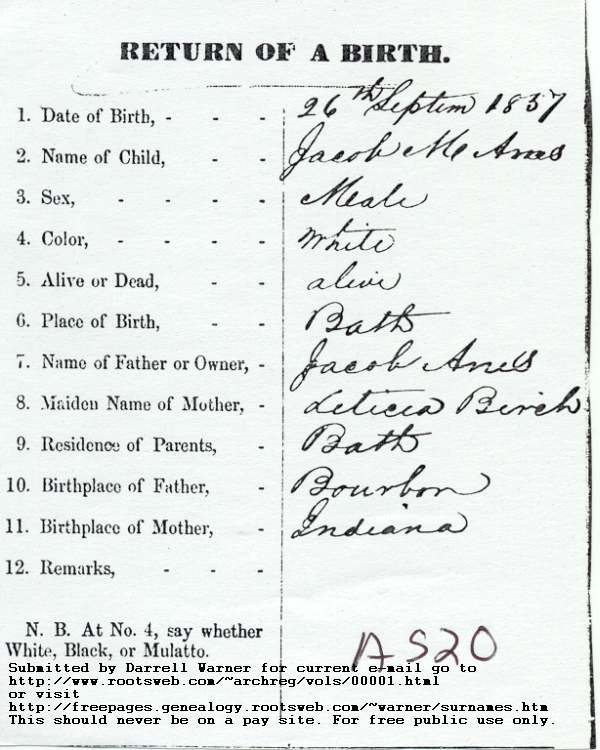 RETURN OF A BIRTH.
1. Date of Birth, - - - 26th Septem 1857
2. Name of Child, - - Jacob M Ames
3. Sex, - - - - Meale
4. Color, - - - - White
5. Alive or Dead, - - alive
6. Place of Birth, - - Bath
7. Name of Father or Owner, - Jacob Ames
8. Maiden Name of Mother, - Leticia Birch
9. Residence of Parents, - Bath
10. Birthplace of Father, - Bourbon
11. Birthplace of Mother, - Indiana
12. Remarks, - - -
N. B. At No. 4, say whether
White, Black, or Mulatto.
A520
Submitted by Darrell Warner for current e-mail go to
http://www.rootsweb.com/~archreg/vols/00001.html
or visit
http://freepages.genealogy.rootsweb.com/~warner/surnames.htm
This should never be on a pay site. For free public use only.